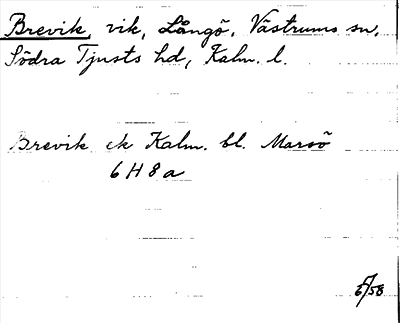 Brevik, vik, Långö, Västrums sn,
Södra Tjusts hd, Kalm. l.
Brevik ek Kalm. bl. Marsö
6 H 8 a
6/58